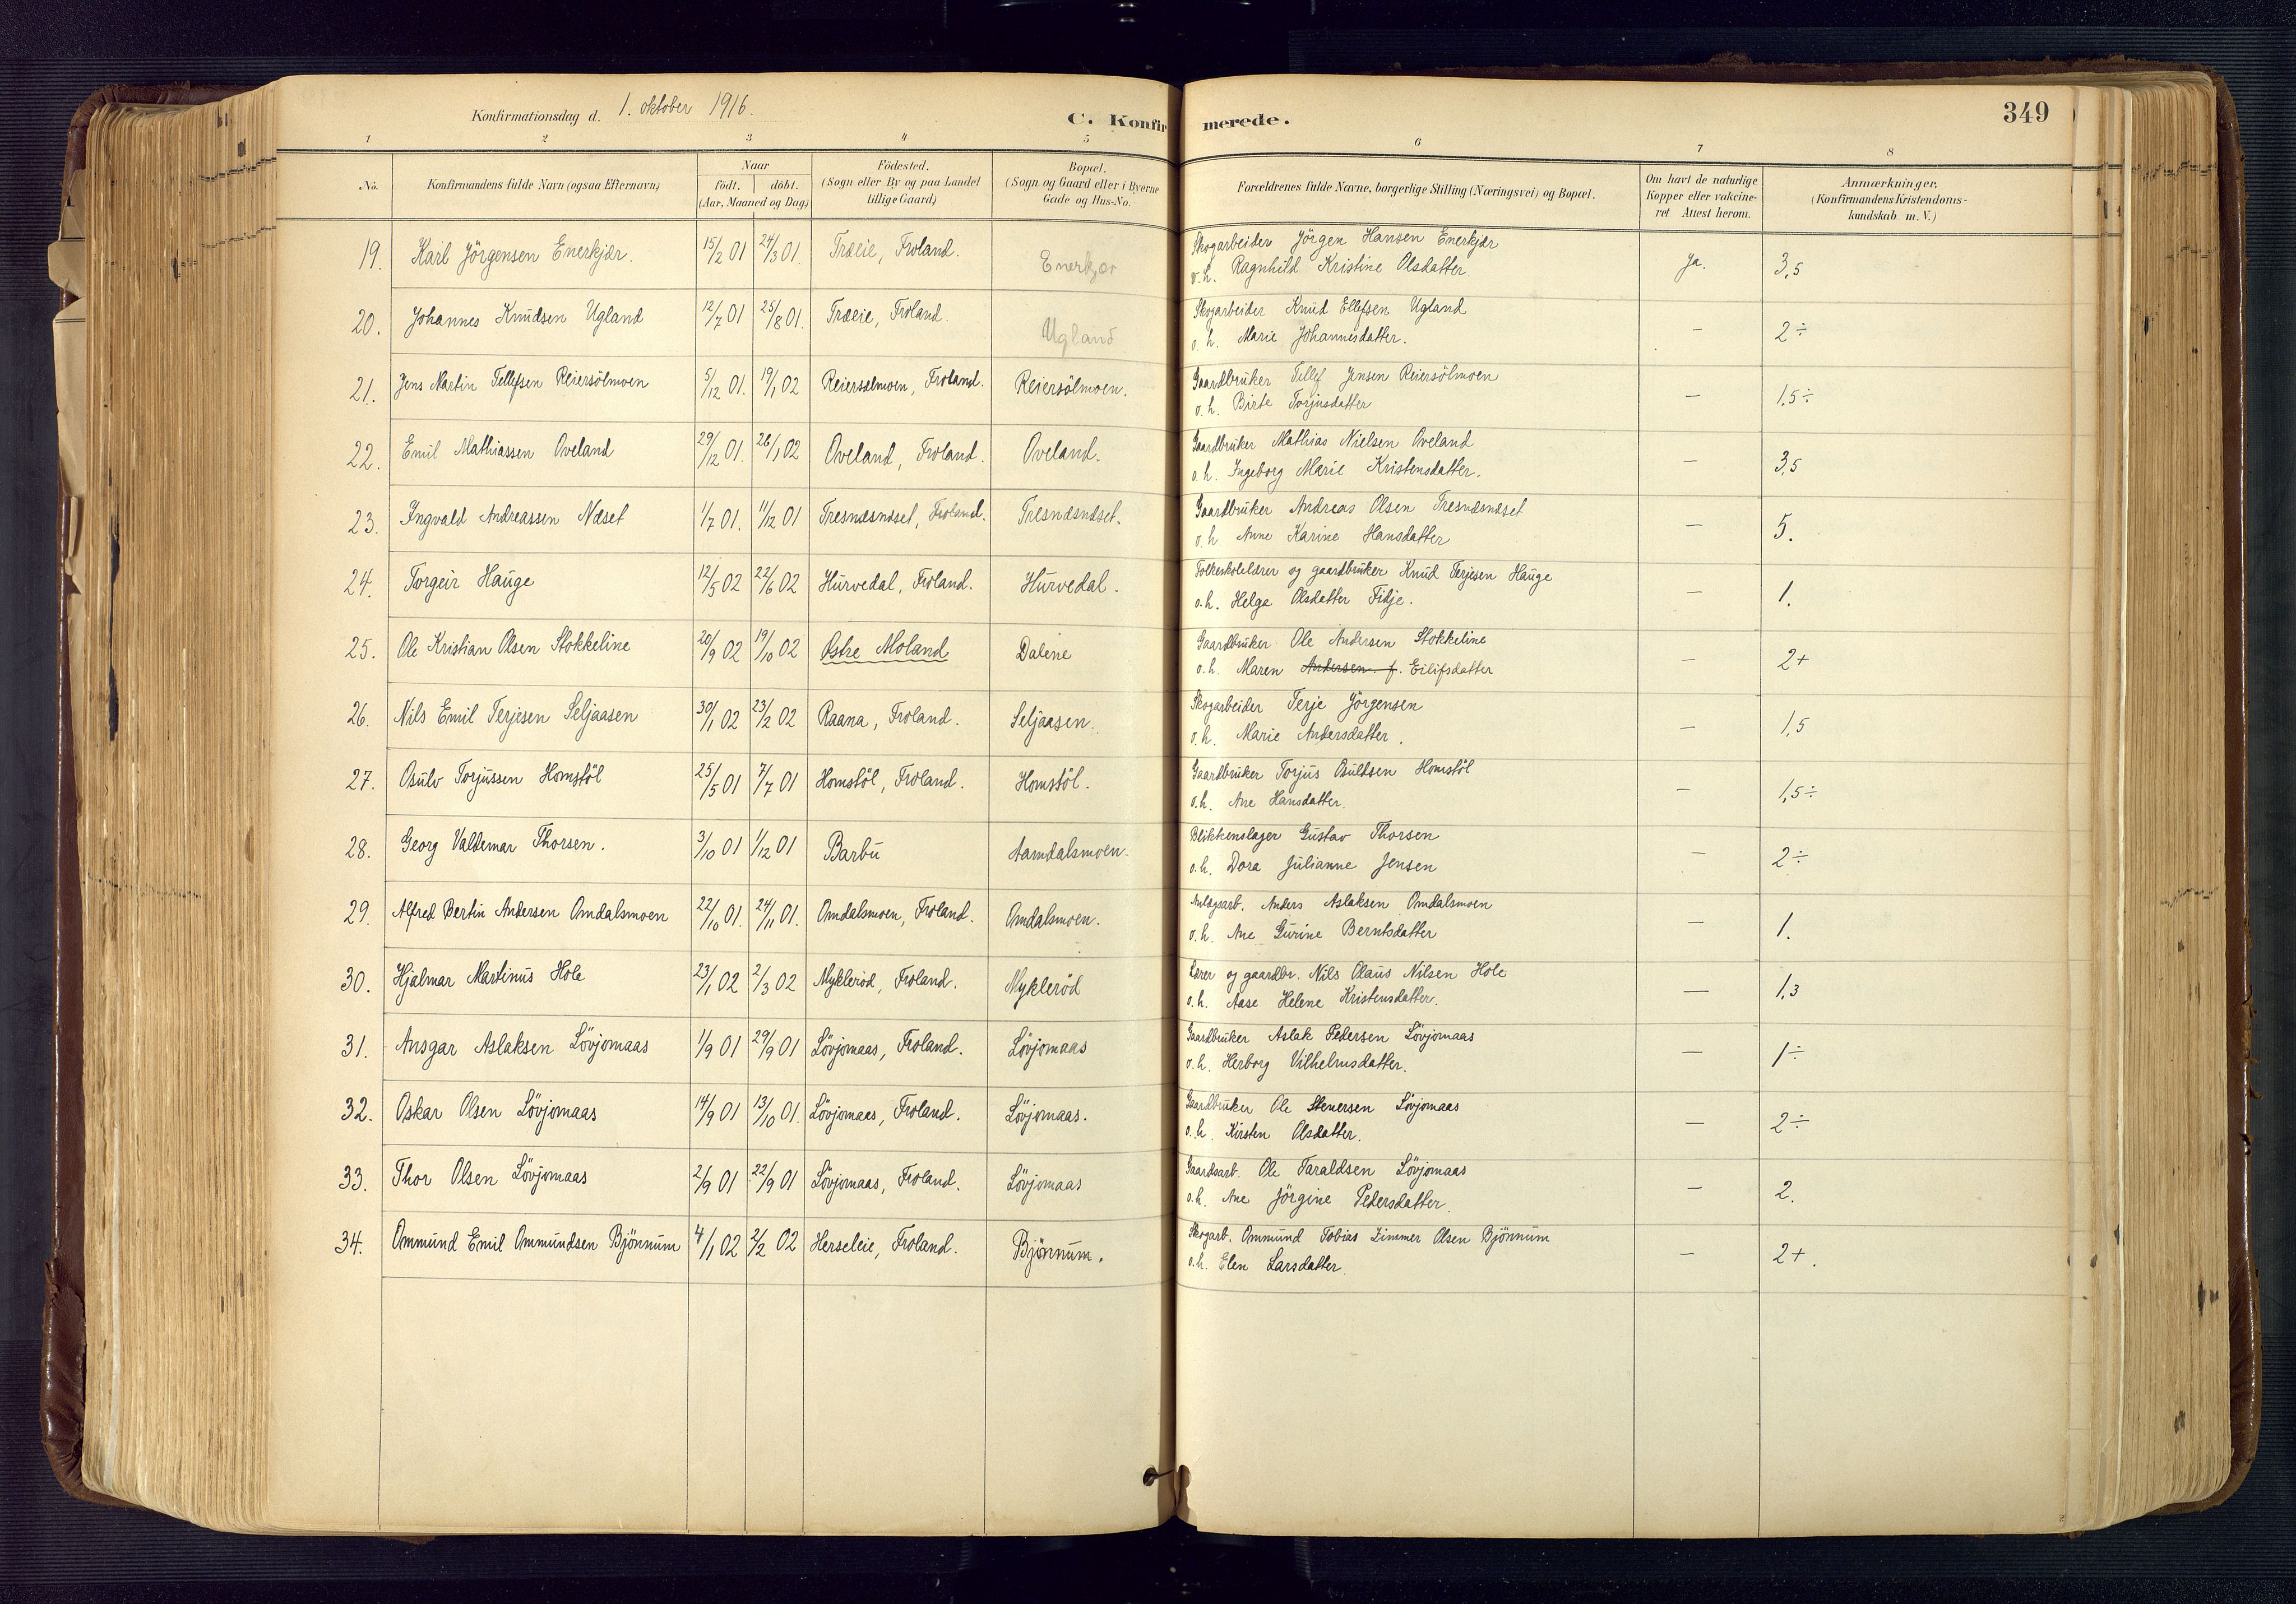 Konfirmationsdag d. 1. oktober 1916.
C. Konfirmerede.
349
1 2 3 4 5 6 7 8
No. Konfirmandens fulde Navn (ogsaa Efternavn) Naar födt. döbt. (Aar, Maaned og Dag) Födested. (Sogn eller By og paa Landet tillige Gaard) Bopæl. (Sogn og Gaard eller i Byerne Gade og Hus-No. Forældrenes fulde Navne, borgerlige Stilling (Næringsvei) og Bopæl. Om havt de naturlige Kopper eller vakcineret Attest herom. Anmærkninger. (Konfirmandens Kristendomskundskab m. V.)
19. Karl Jörgensen Enerkjær. 15/2 01 24/3 01. Træeie, Froland. Enerkjær Skogarbeider Jörgen Hansen Enerkjær
o. h. Ragnhild Kristine Olsdatter. Ja. 3,5
20. Johannes Knudsen Ugland 12/7 01 25/8 01. Træeie, Froland. Ugland Skogarbeider Knud Ellefsen Ugland
o. h. Marie Johannesdatter. — 2÷
21. Jens Martin Tellefsen Reiersölmoen 5/12 01. 19/1 02 Reierselmoen, Froland. Reiersölmoen. Gaardbruker Tellef Jensen Reiersölmoen
o. h. Birte Torjusdatter — 1,5÷
22. Emil Mathiassen Oveland 29/12 01. 26/1 02 Oveland, Froland. Oveland. Gaardbruker Mathias Nielsen Oveland
o. h. Ingeborg Marie Kristensdatter. — 3,5
23. Ingvald Andreassen Næset 1/7 01. 11/12 01 Tresnæsnæset, Froland. Tresnæsnæset. Gaardbruker Andreas Olsen Tresnæsnæset
o. h. Anne Karine Hansdatter — 5.
24. Torgeir Hauge 12/5 02 22/6 02 Hurvedal, Froland. Hurvedal. Folkeskolelærer og gaardbruker Knud Terjesen Hauge
o. h. Helga Olsdatter Fidje. — 1.
25. Ole Kristian Olsen Stokkeline 20/9 02 19/10 02 Østre Moland Dalene Gaardbruker Ole Andersen Stokkeline
o. h. Maren Andersen f. Eilifsdatter — 2+
26. Nils Emil Terjesen Seljaasen 30/1 02 23/2 02 Raana, Froland. Seljaasen. Skogarbeider Terje Jörgensen
o. h. Marie Andersdatter. — 1,5
27. Osulv Torjussen Homstöl 25/5 01 7/7 01 Homstöl, Froland. Homstöl. Gaardbruker Torjus Osuldsen Homstöl
o. h. Ane Hansdatter. — 1,5÷
28. Georg Valdemar Thorsen. 3/10 01 1/12 01 Barbu Aamdalsmoen. Blikkenslager Gustav Thorsen
o. h. Dora Julianne Jensen — 2÷
29. Alfred Bertin Andersen Omdalsmoen 22/10 01. 24/11 01. Omdalsmoen, Froland. Omdalsmoen. Anlægsarb. Anders Aslaksen Omdalsmoen
o. h. Ane Gurine Berntsdatter — 1.
30. Hjalmar Martinus Hole 23/1 02 2/3 02 Mykleröd, Froland. Mykleröd Lærer og gaardbr. Nils Olaus Nilsen Hole
o. h. Aase Helene Kristensdatter. — 1,3
31. Ansgar Aslaksen Lövjomaas 1/9 01 29/9 01 Lövjomaas, Froland. Lövjomaas Gaardbruker Aslak Pedersen Lövjomaas
o. h. Herborg Vilhelmsdatter. — 1÷
32. Oskar Olsen Lövjomaas 14/9 01 13/10 01. Lövjomaas, Froland. Lövjomaas. Gaardbruker Ole Stenersen Lövjomaas
o. h. Kirsten Olsdatter. — 2÷
33. Thor Olsen Lövjomaas 2/9 01 22/9 01 Lövjomaas, Froland. Lövjomaas Gaardsarb. Ole Taraldsen Lövjomaas
o. h. Ane Jörgine Pedersdatter. — 2.
34. Ommund Emil Ommundsen Bjönnum 4/1 02 2/2 02 Herseleie, Froland. Bjönnum. Skogarb. Ommund Tobias Zimmer Olsen Bjönnum
o. h. Elen Larsdatter. — 2+.